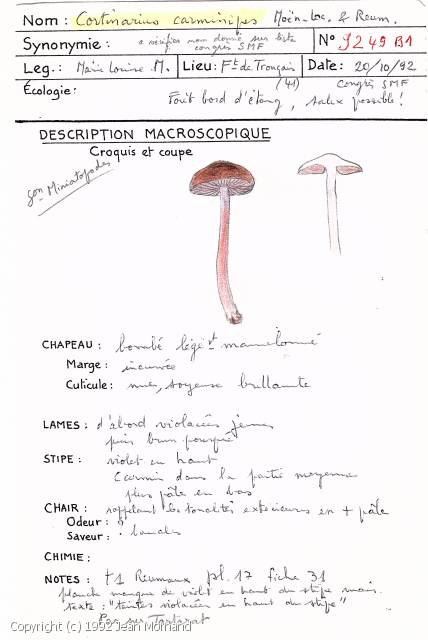 Nom : Cortinarius carminipes Moën-Loc. & Reum.
Synonymie : a vérifier nom donné sur liste
congrès SMF
N° J249 B1
Leg. : Marie Louise M. Lieu : Ft de Tronçais (41) Date : 20/10/92
Congrès SMF
Écologie : Forêt bord d'étang, salix possible !
DESCRIPTION MACROSCOPIQUE
Croquis et coupe
Miniatopodes
CHAPEAU : bombé légèt mamelonné
Marge : incurvée
Cuticule : nue, soyeuse brillante
LAMES : d'abord violacées jeunes
puis brun pourpre
STIPE : violet en haut
carmin dans la partie moyenne
plus pâle en bas
CHAIR : rappelant les tonalités extérieures en + pâle
Odeur : ?
Saveur : banale
CHIMIE :
NOTES : t1 Reumaux pl. 17 fiche 31
planche manque de violet en haut du stipe mais
texte : "teintes violacées en haut du stipe"
Copyright (c) 1992 Jean Mornand